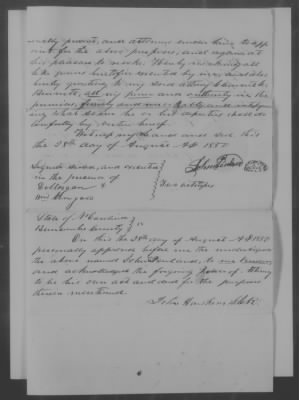 ally present, and attorneys under him to app
oint for the above purposes, and again at
his pleasure to revoke. Hereby revoking all
like powers heretofore executed by me, and also
hereby granting to my said attorney
Bennett, all my power and authority in the
premises, firmly and irrevocably and ratifying
what ever he or his deputies shall do
lawfully by virtue hereof.
Witness my hand and seal this
the 28th day of August AD 1850
Signed sealed, and executed
in the presence of
&
Wm
two witnesses
John Penland
State of N Carolina
Buncombe County
On this the 28th day of August AD 1850
personally appeared before me the undersigned
the above named John Penland, to me known
and acknowledged the forgoing power of attorney
to be his own act and deed for the purposes
therein mentioned.
John